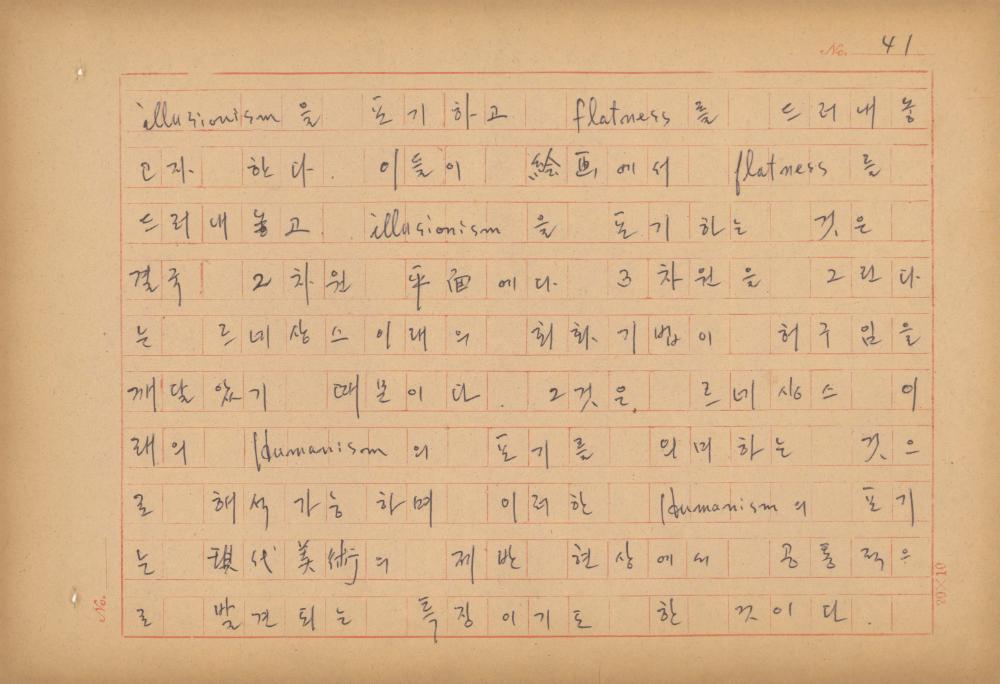 No. 41
illusionism을 포기하고 flatness를 드러내놓
고자 한다. 이들이 絵画에서 flatness를
드러내놓고 illusionism을 포기하는 것은
결국 2차원 平面에다 3차원을 그린다
는 르네상스이래의 회화기법이 허구임을
깨달았기 때문이다. 그것은 르네상스 이
래의 Humanism의 포기를 의미하는 것으
로 해석가능하며 이러한 Humanism의 포기
는 現代美術의 제반 현상에서 공통적으
로 발견되는 특징이기도 한 것이다.
No.
20×10